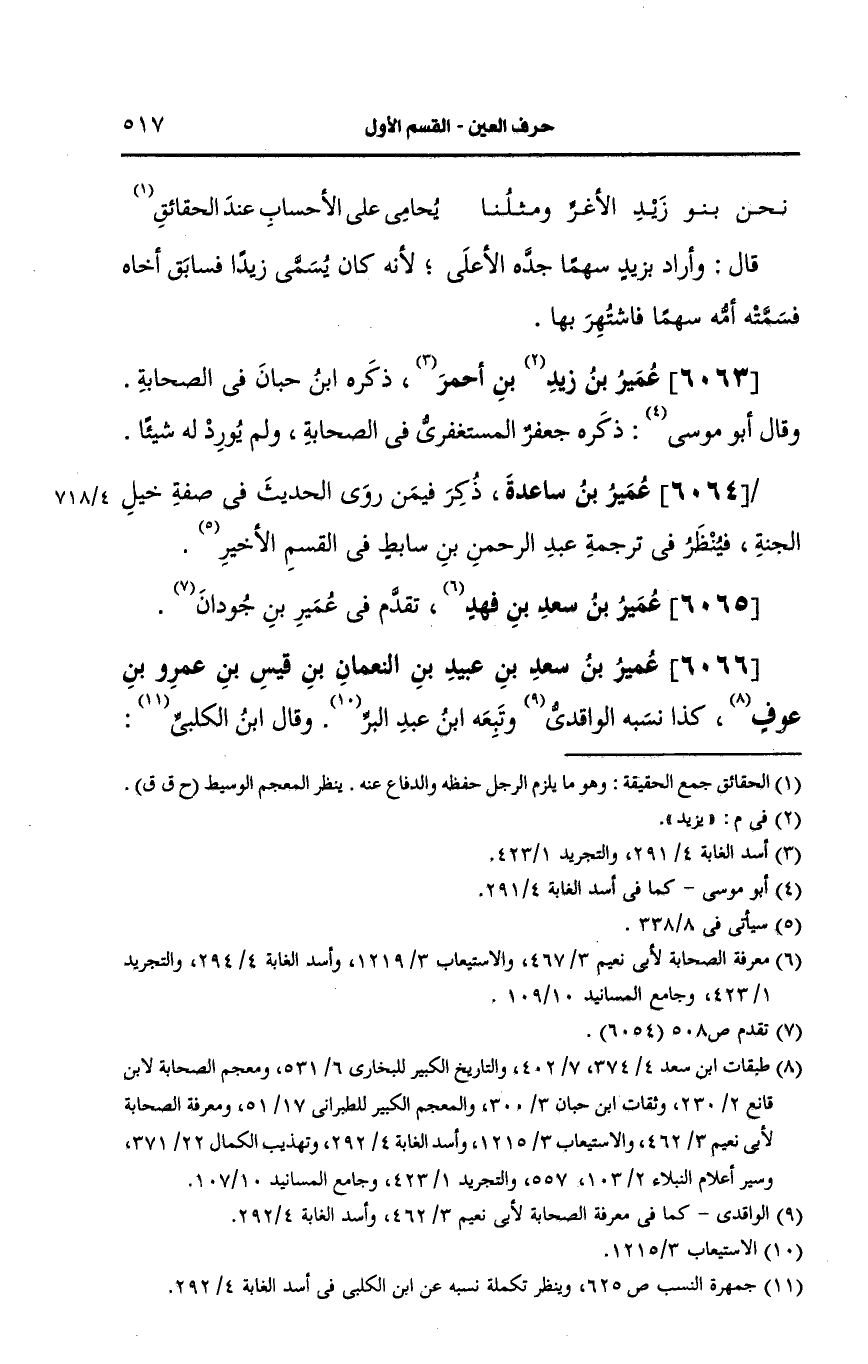 حرف العين - القسم الأول ٥١٧
نحن بنو زَيْدِ الأغرِّ ومثلُنا يُحامِى على الأحسابِ عندَ الحقائقِ(١)
قال : وأراد بزيدٍ سهمًا جدَّه الأعلَى ؛ لأنه كان يُسَمَّى زيدًا فسابَق أخاه
فسَمَّتْه أمُّه سهمًا فاشتُهِرَ بها .
[٦٠٦٣] عُمَيرُ بنُ زيدِ(٢) بنِ أحمرَ(٣) ، ذكَره ابنُ حبانَ فى الصحابةِ .
وقال أبو موسى(٤) : ذكَره جعفرٌ المستغفرىُّ فى الصحابةِ ، ولم يُورِدْ له شيئًا .
/[٦٠٦٤] عُمَيرُ بنُ ساعدةَ ، ذُكِرَ فيمَن روَى الحديثَ فى صفةِ خيلِ ٧١٨/٤
الجنةِ ، فيُنْظَرُ فى ترجمةِ عبدِ الرحمنِ بنِ سابطٍ فى القسمِ الأخيرِ(٥) .
[٦٠٦٥] عُمَيرُ بنُ سعدِ بنِ فهدٍ(٦) ، تقدَّم فى عُمَيرِ بنِ جُودانَ(٧) .
[٦٠٦٦] عُميرُ بنُ سعدِ بنِ عبيدِ بنِ النعمانِ بنِ قيسِ بنِ عمرِو بنِ
عوفٍ(٨) ، كذا نسَبه الواقدىُّ(٩) وتَبِعَه ابنُ عبدِ البرِّ(١٠). وقال ابنُ الكلبىِّ(١١) :
(١) الحقائق جمع الحقيقة : وهو ما يلزم الرجل حفظه والدفاع عنه . ينظر المعجم الوسيط (ح ق ق) .
(٢) فى م : «يزيد».
(٣) أسد الغابة ٤/ ٢٩١، والتجريد ٤٢٣/١.
(٤) أبو موسى - كما فى أسد الغابة ٢٩١/٤.
(٥) سيأتى فى ٣٣٨/٨ .
(٦) معرفة الصحابة لأبى نعيم ٣/ ٤٦٧، والاستيعاب ٣/ ١٢١٩، وأسد الغابة ٤/ ٢٩٤، والتجريد
١/ ٤٢٣، وجامع المسانيد ١٠٩/١٠ .
(٧) تقدم ص٥٠٨ (٦٠٥٤) .
(٨) طبقات ابن سعد ٤/ ٣٧٤، ٧/ ٤٠٢، والتاريخ الكبير للبخارى ٦/ ٥٣١، ومعجم الصحابة لابن
قانع ٢/ ٢٣٠، وثقات ابن حبان ٣/ ٣٠٠، والمعجم الكبير للطبرانى ١٧/ ٥١، ومعرفة الصحابة
لأبى نعيم ٣/ ٤٦٢، والاستيعاب ٣/ ١٢١٥، وأسد الغابة ٤/ ٢٩٢، وتهذيب الكمال ٢٢/ ٣٧١،
وسير أعلام النبلاء ٢/ ١٠٣، ٥٥٧، والتجريد ١/ ٤٢٣، وجامع المسانيد ١٠٧/١٠.
(٩) الواقدى - كما فى معرفة الصحابة لأبى نعيم ٣/ ٤٦٢، وأسد الغابة ٢٩٢/٤.
(١٠) الاستيعاب ١٢١٥/٣.
(١١) جمهرة النسب ص ٦٢٥، وينظر تكملة نسبه عن ابن الكلبى فى أسد الغابة ٤/ ٢٩٢.